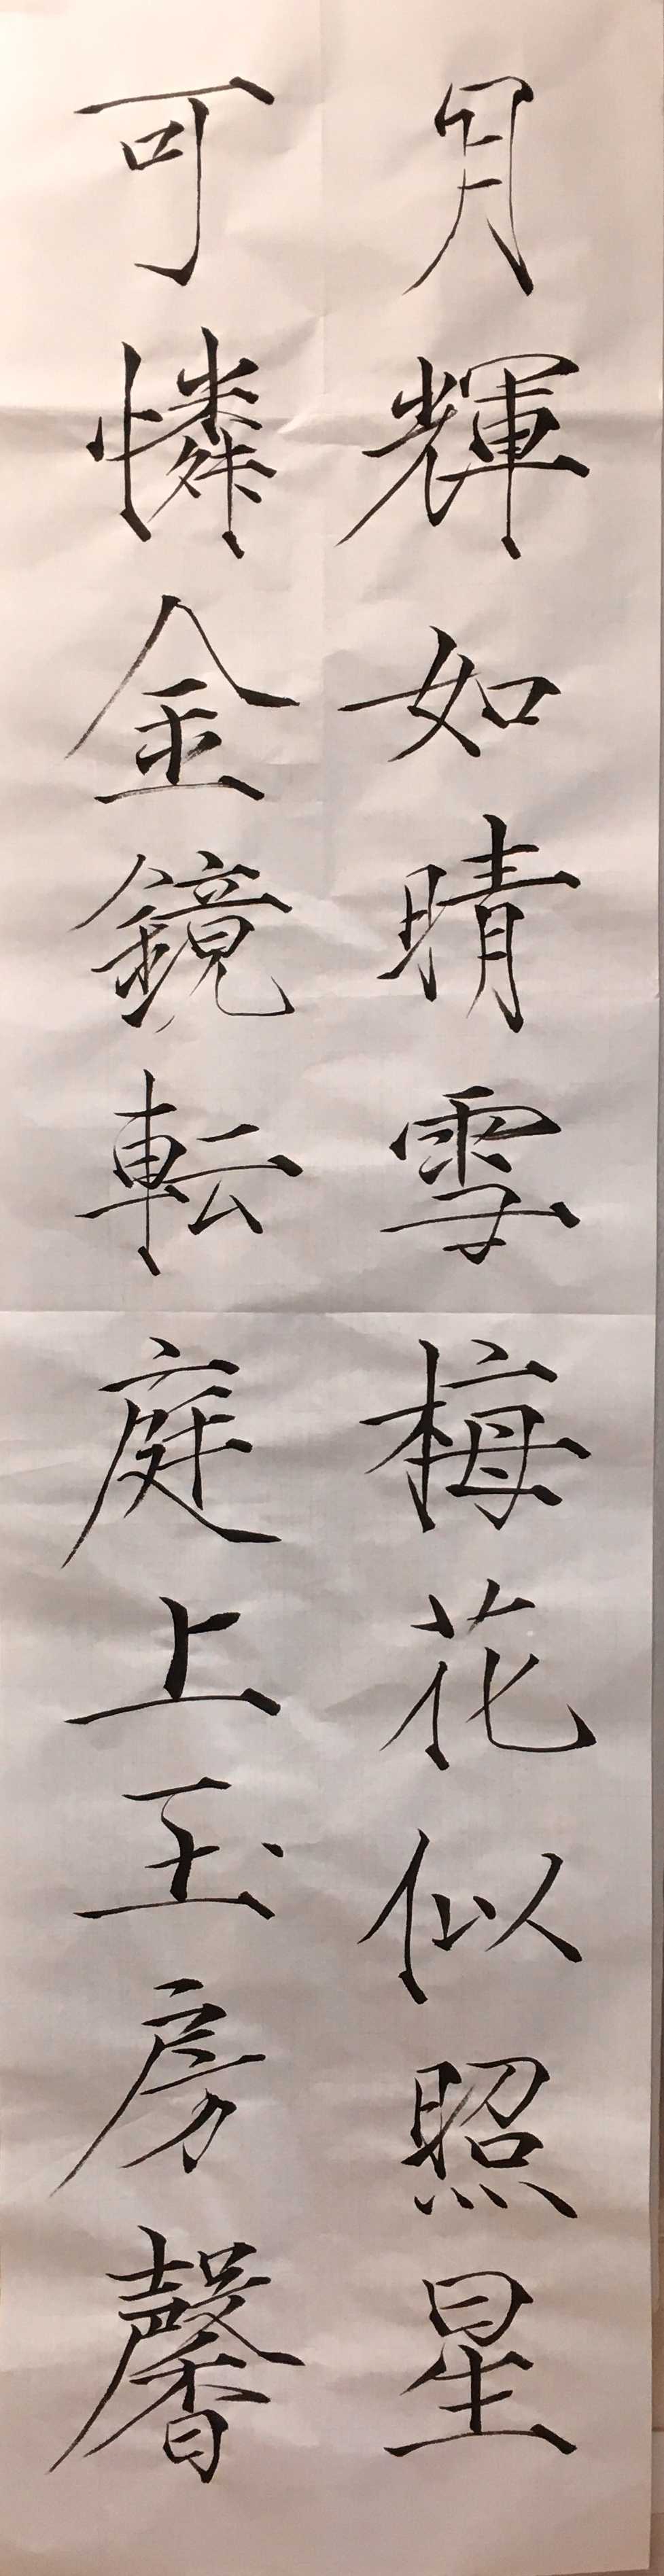 月輝如晴雪梅花似照星
可憐金鏡転庭上玉房馨